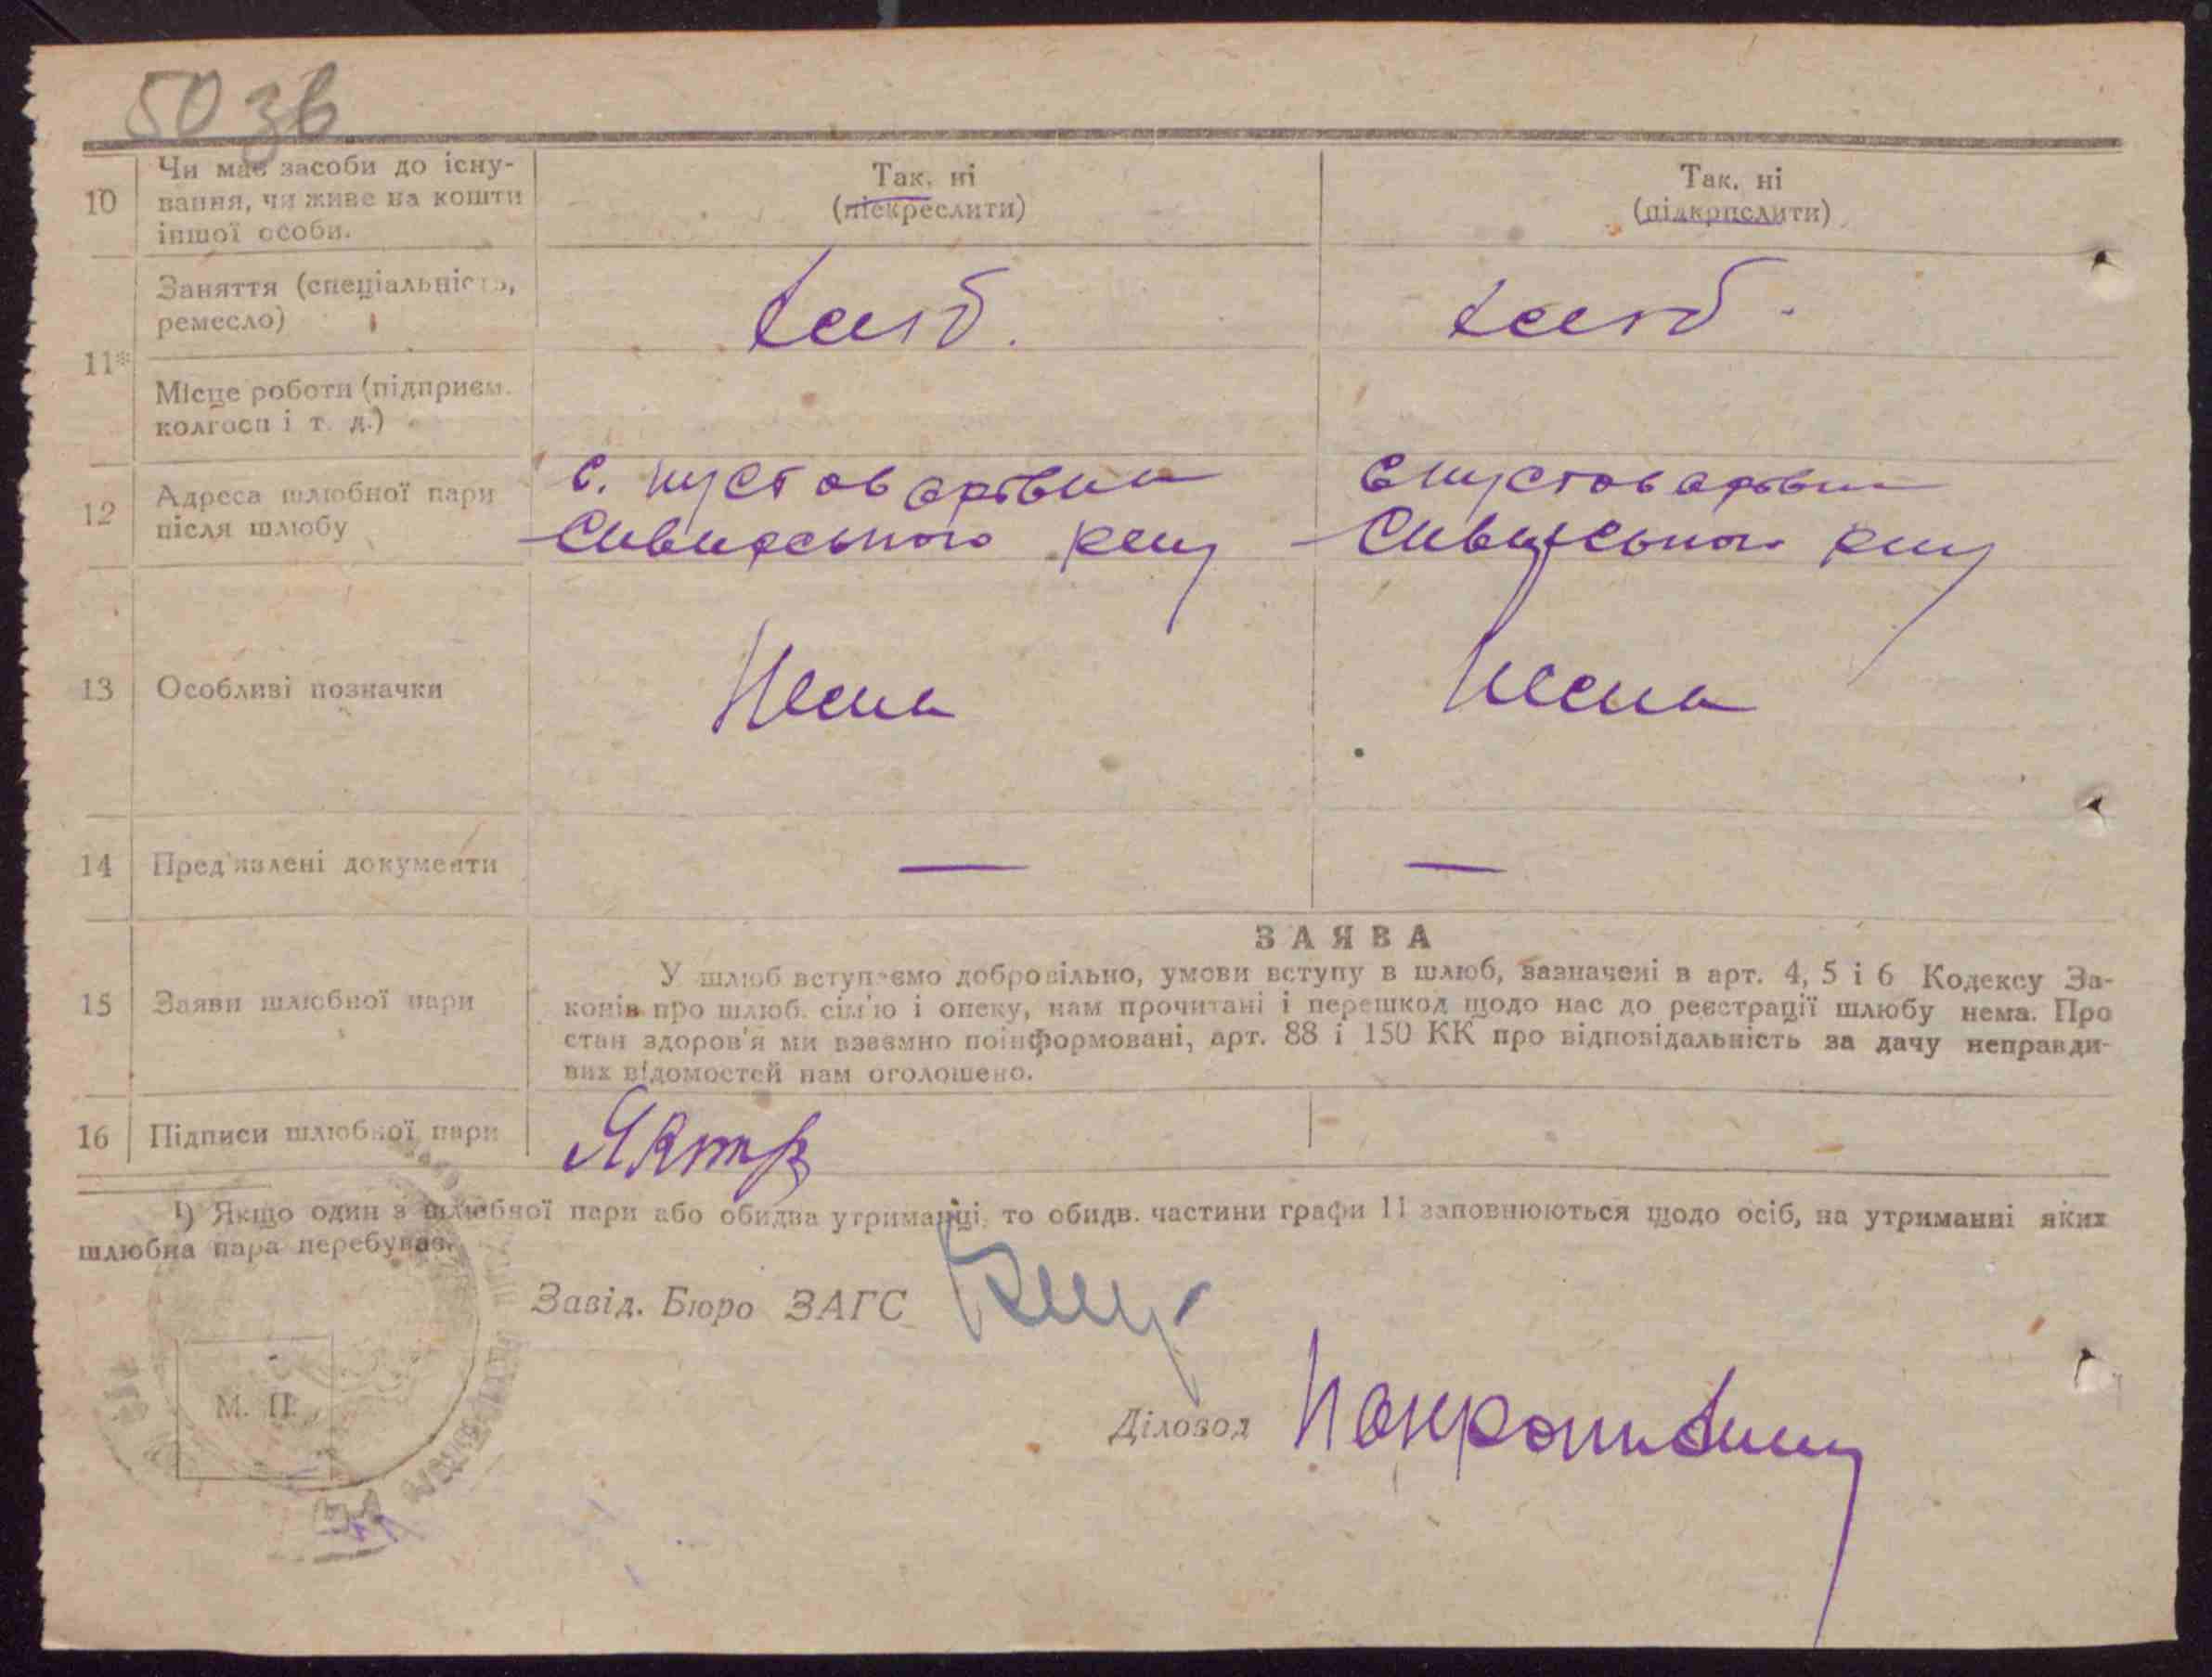 50 зв
10 Чи має засоби до існу-
вання, чи живе на кошти
іншої особи.
Так, ні
(піскреслити)
Так, ні
(підкрпслити)
11* Заняття (спеціальність,
ремесло)
Місце роботи (підприєм.
колгосп і т. д.)
12 Адреса шлюбної пари
після шлюбу
с. Пустоварівка
Сквирського р-ну
с Пустоварівка
Сквирського р-ну
13 Особливі позначки
Нема
Нема
14 Пред'явлені документи
— —
15 Заяви шлюбної пари
ЗАЯВА
У шлюб вступаємо добровільно, умови вступу в шлюб, зазначені в арт. 4, 5 і 6 Кодексу За-
конів про шлюб. сім'ю і опеку, нам прочитані і перешкод щодо нас до реєстрації шлюбу нема. Про
стан здоров'я ми взаємно поінформовані, арт. 88 і 150 КК про відповідальність за дачу неправди-
вих відомостей нам оголошено.
16 Підписи шлюбної пари
¹) Якщо один з шлюбної пари або обидва утриманці, то обидв. частини графи 11 заповнюються щодо осіб, на утриманні яких
шлюбна пара перебуває.
Завід. Бюро ЗАГС
М. П.
Діловод